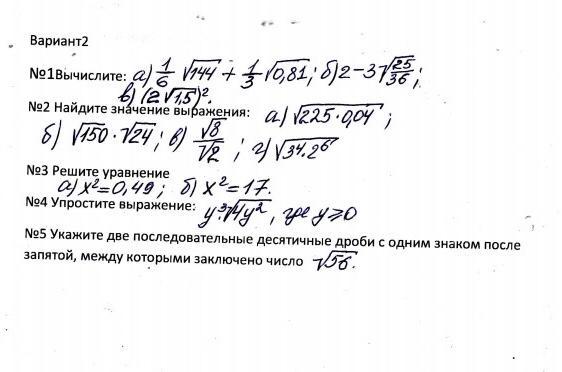 Вариант2
№1Вычислите: а) 1/6 √144 + 1/3 √0,81; б) 2-3√25/36;
в) (2√1,5)².
№2 Найдите значение выражения: а) √225·0,04 ;
б) √150·√24; в) √8/√2 ; г) √3⁴·2⁶
№3 Решите уравнение
а) x²=0,49; б) x²=17.
№4 Упростите выражение: y³√4y², где y≥0
№5 Укажите две последовательные десятичные дроби с одним знаком после
запятой, между которыми заключено число √56.